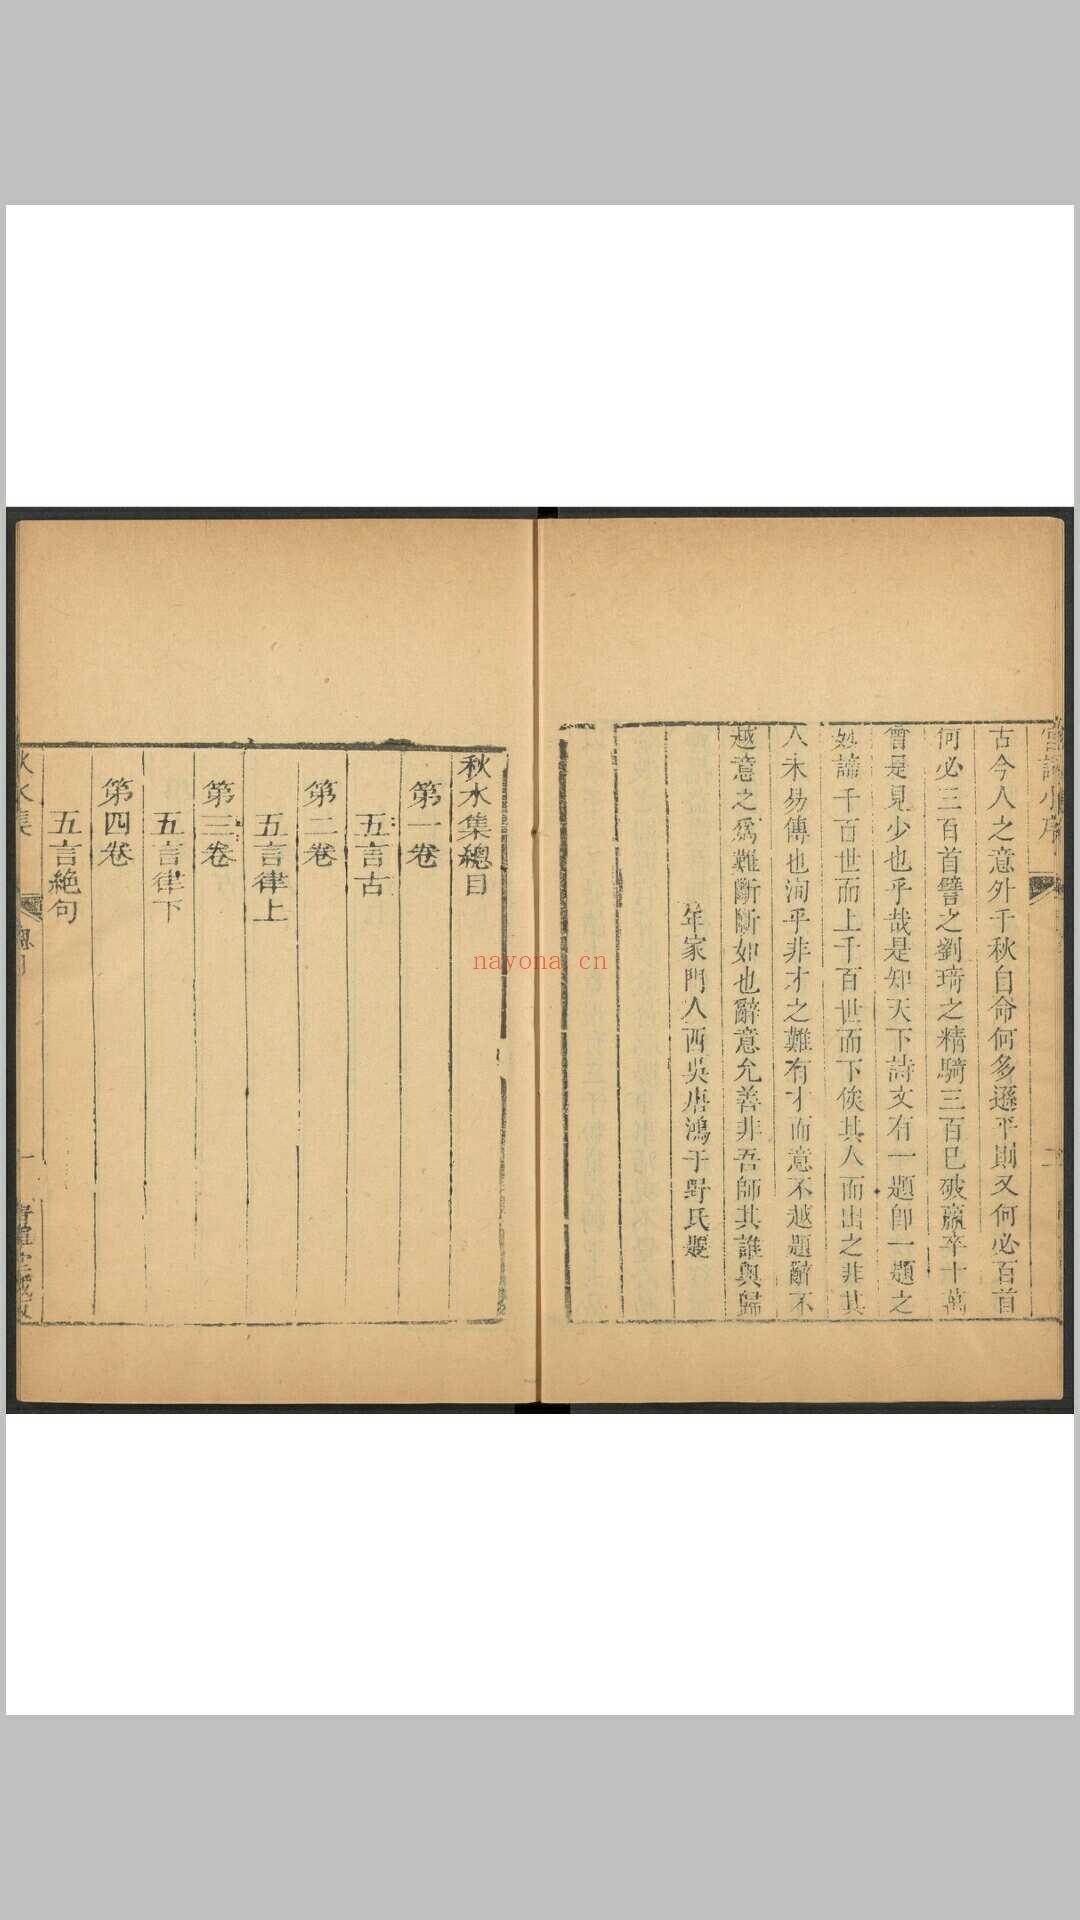 小序
二
古今人之意外千秋自命何多遜乎則又何必百首
何必三百首譬之劉琦之精騎三百已破羸卒十萬
曾是見少也乎哉是知天下詩文有一題卽一題之
妙諦千百世而上千百世而下俟其人而出之非其
人未易傳也洵乎非才之難有才而意不越題辭不
越意之爲難斷斷如也辭意允善非吾師其誰與歸
年家門人西吳唐鴻于野氏題
秋水集總目
第一卷
五言古
第二卷
五言律上
第三卷
五言律下
第四卷
五言絕句
秋水集
總目
一
nayona.cn